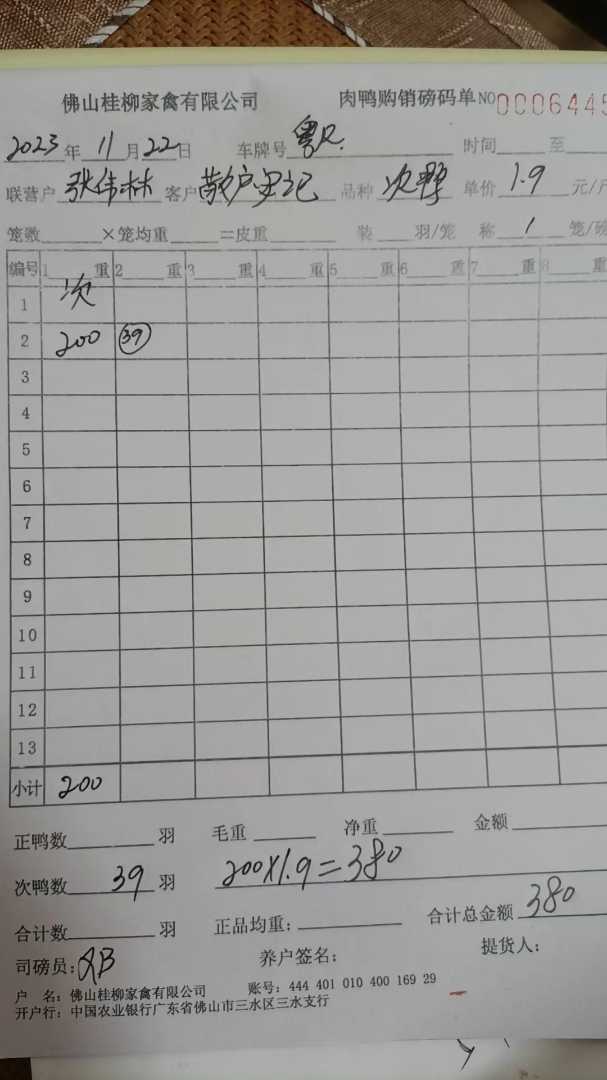 佛山桂柳家禽有限公司 肉鸭购销磅码单 NO 0006445
2023年 11月22日 车牌号 粤R. 时间 至
联营户 张伟林 客户 散户 记 品种 次鸭 单价 1.9 元/斤
笼数 ×笼均重 =皮重 装 羽/笼 称 1 笼/磅
编号 1 重 2 重 3 重 4 重 5 重 6 重 7 重 8 重
1 次
2 200 39
3
4
5
6
7
8
9
10
11
12
13
小计 200
正鸭数 羽 毛重 净重 金额
次鸭数 39 羽 200×1.9=380
合计数 羽 正品均重: 合计总金额 380
司磅员: 养户签名: 提货人:
户 名: 佛山桂柳家禽有限公司 账号: 444 401 010 400 169 29
开户行: 中国农业银行广东省佛山市三水区三水支行